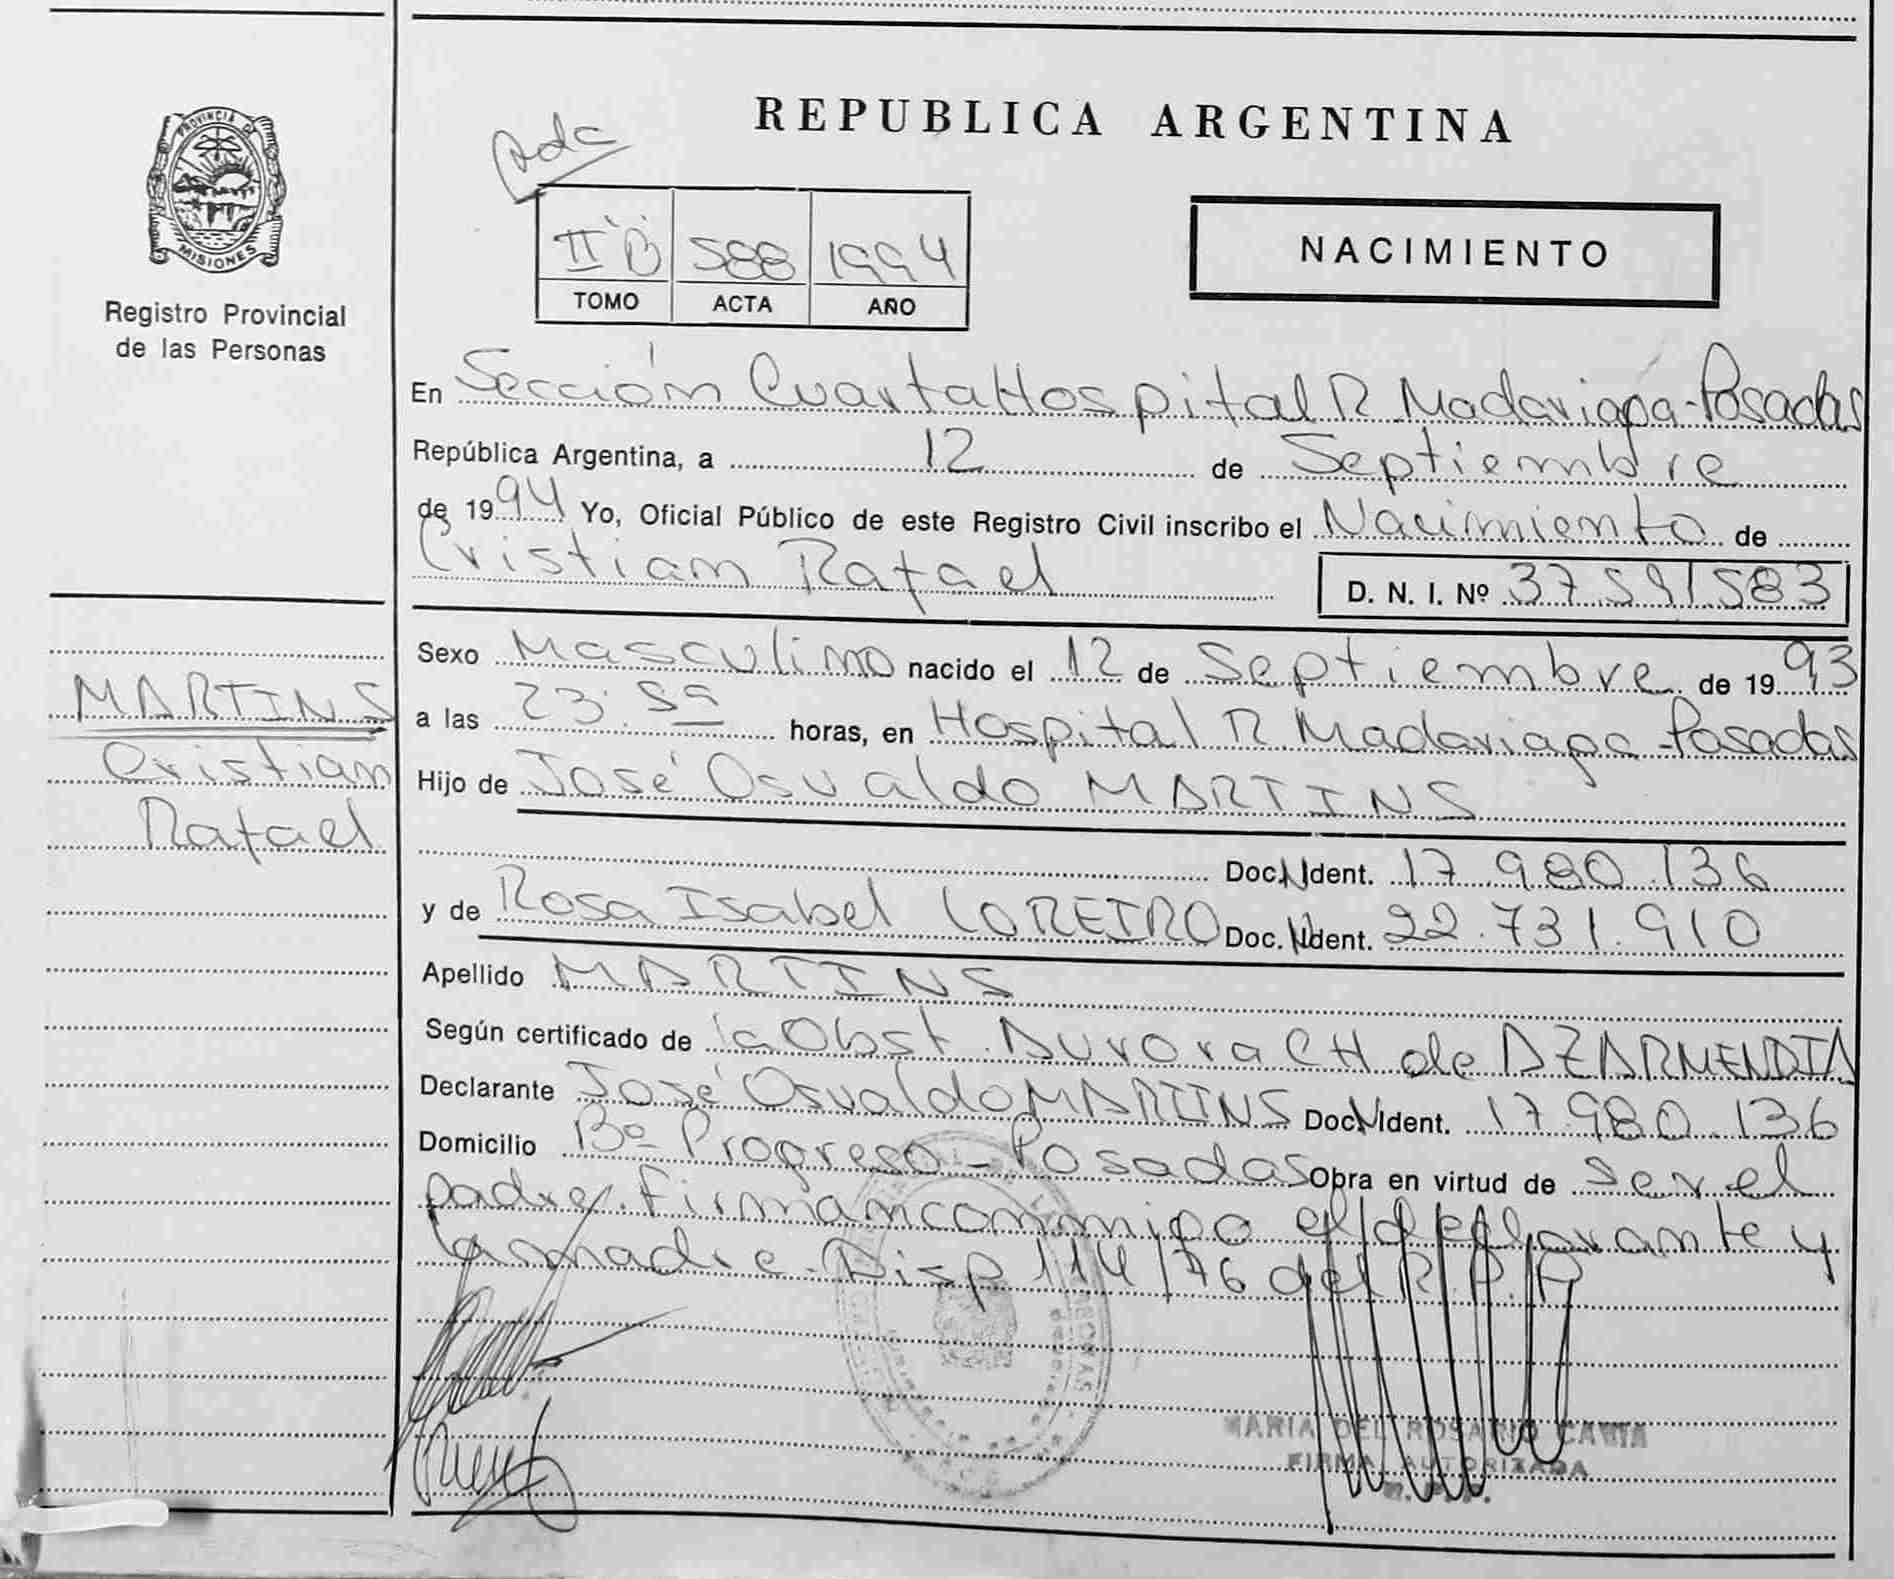 PROVINCIA DE
MISIONES
Registro Provincial
de las Personas
MARTINS
Cristian
Rafael
REPUBLICA ARGENTINA
Adc
II "B" 588 1994
TOMO ACTA AÑO
NACIMIENTO
En Sección Cuarta Hospital R Madariaga - Posadas
República Argentina, a 12 de Septiembre
de 1994 Yo, Oficial Público de este Registro Civil inscribo el Nacimiento de
Cristian Rafael D. N. I. Nº 37.591583
Sexo Masculino nacido el 12 de Septiembre de 1993
a las 23:59 horas, en Hospital R Madariaga - Posadas
Hijo de José Osvaldo MARTINS
Doc. N Ident. 17.980.136
y de Rosa Isabel LOREIRO Doc. N Ident. 22.731.910
Apellido MARTINS
Según certificado de la Obst. Aurora CH de AZARMENDIA
Declarante José Osvaldo MARTINS Doc. N Ident. 17.980.136
Domicilio Bº Progreso - Posadas Obra en virtud de ser el
padre. Firman conmigo el declarante y
la madre. Disp 114/76 del R.P.P
MARIA DEL ROSARIO
FIRMA AUTORIZADA